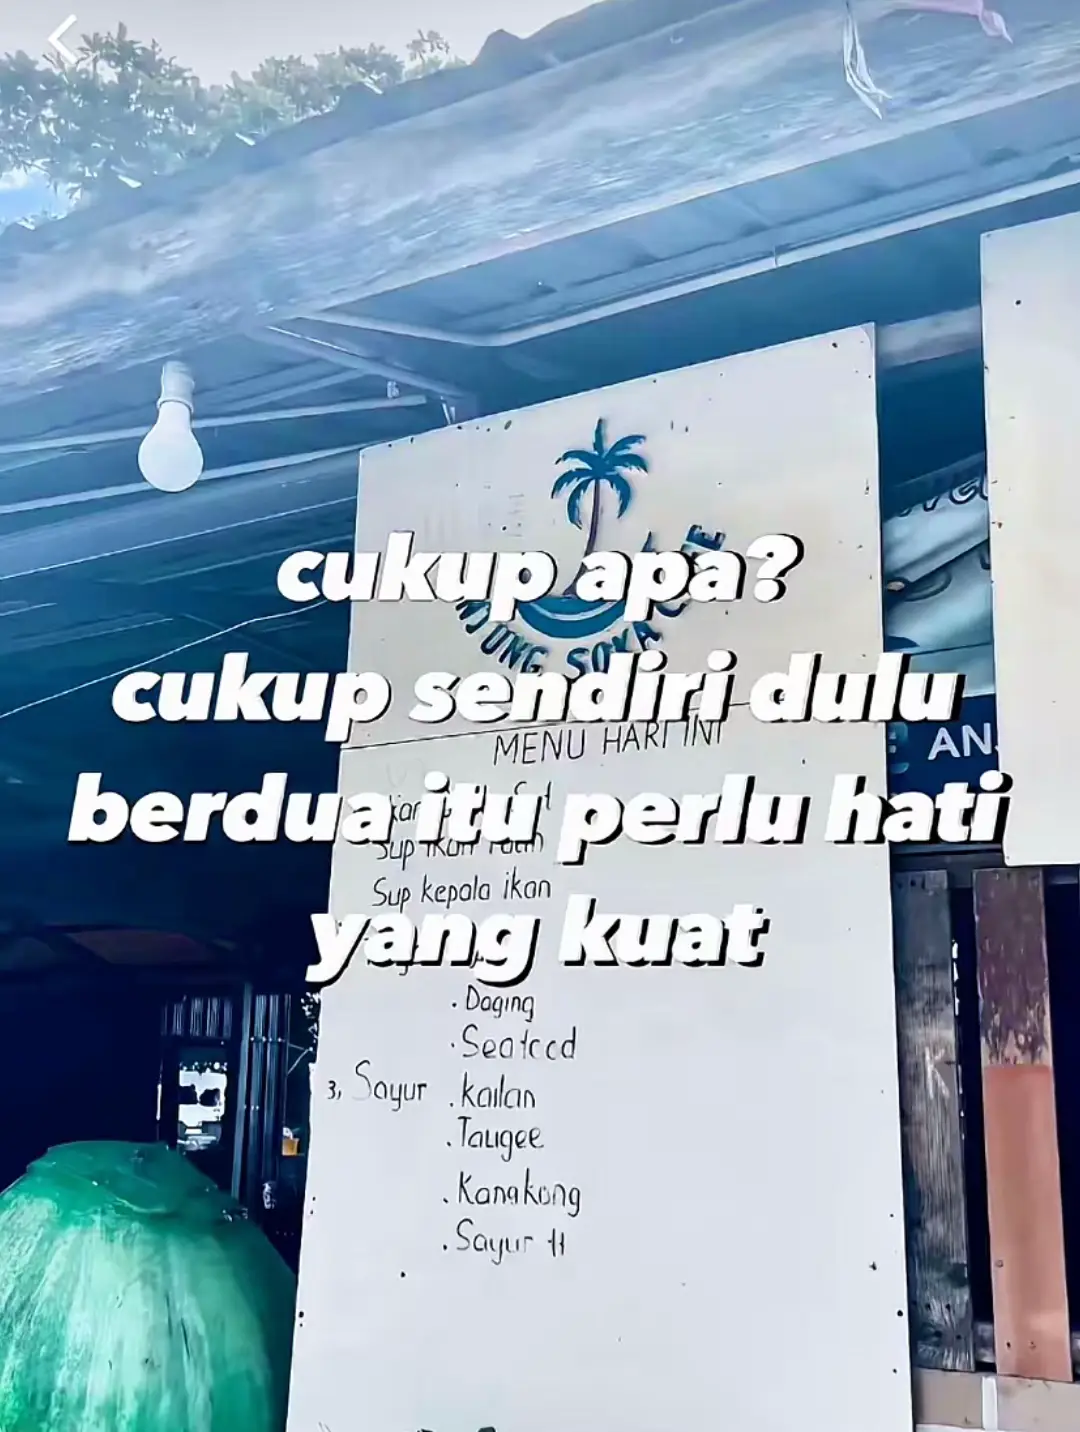 cukup apa?
cukup sendiri dulu
berdua itu perlu hati
yang kuat
SOKA
MENU HARI INI
AN
Sup ikan
Sup kepala ikan
. Daging
. Seafood
3, Sayur . Kailan
. Taugee
. Kangkong
. Sayur